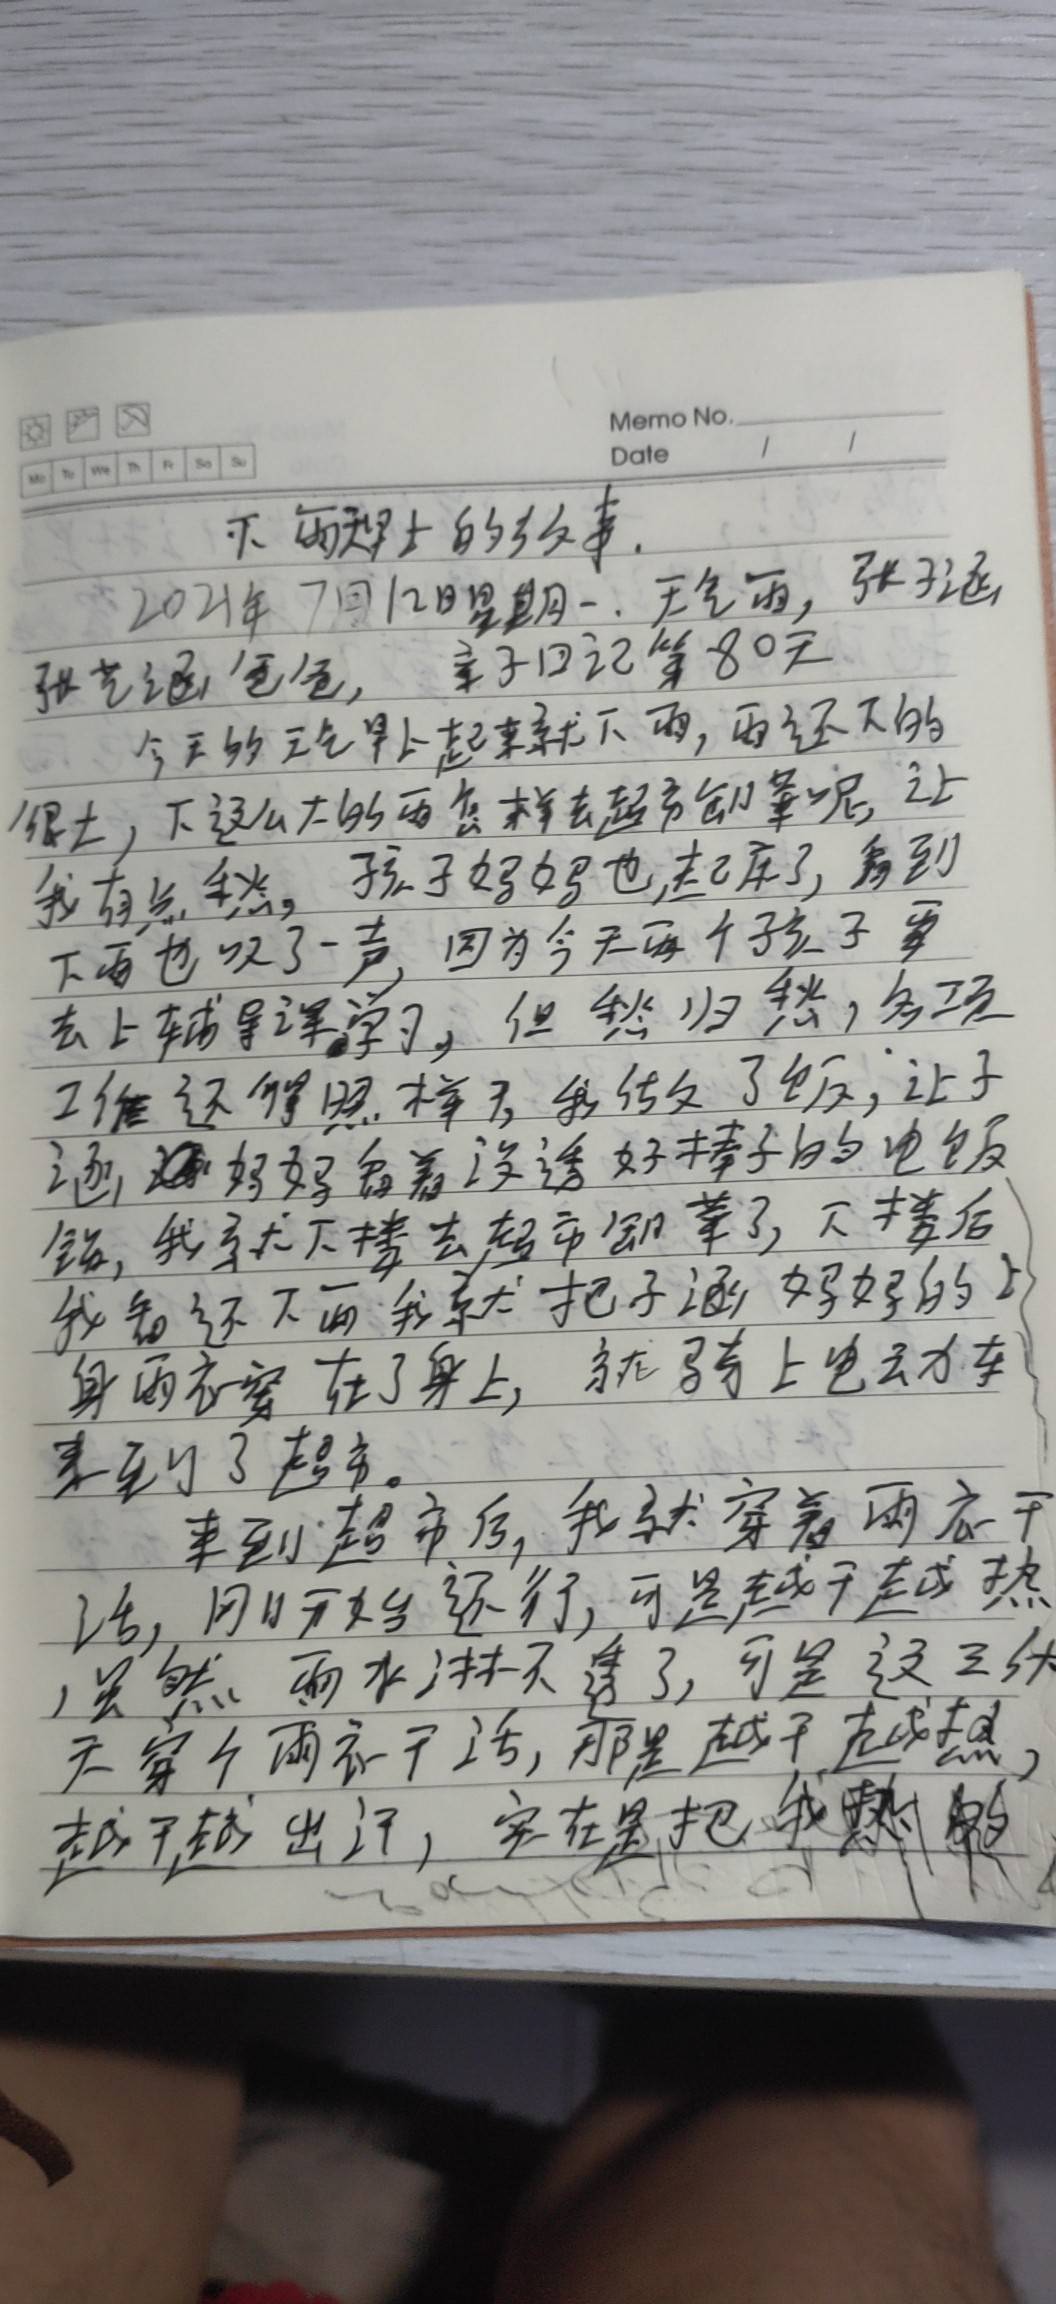 Memo No.
Date / /
Mo Tu We Th Fr Sa Su
下雨早上的故事.
2021年7月12日星期一.天气雨,张子涵
张艺涵爸爸, 亲子日记第80天
今天的天气早上起来就下雨,雨还下的
很大,下这么大的雨怎样去超市卸菜呢,让
我有点愁。孩子妈妈也起床了,看到
下雨也叹了一声,因为今天两个孩子要
去上辅导课学习。但愁归愁,各项
工作还得照样干,我做了饭,让子
涵妈妈看着没透好棒子的电饭
锅,我就下楼去超市卸菜了,下楼后
我看还下雨我就把子涵妈妈的上
身雨衣穿在了身上,就骑上电动车
来到了超市。
来到超市后,我就穿着雨衣干
活,刚开始还行,可是越干越热
,虽然雨水淋不透了,可是这三伏
天穿个雨衣干活,那是越干越热,
越干越出汗,实在是把我热的